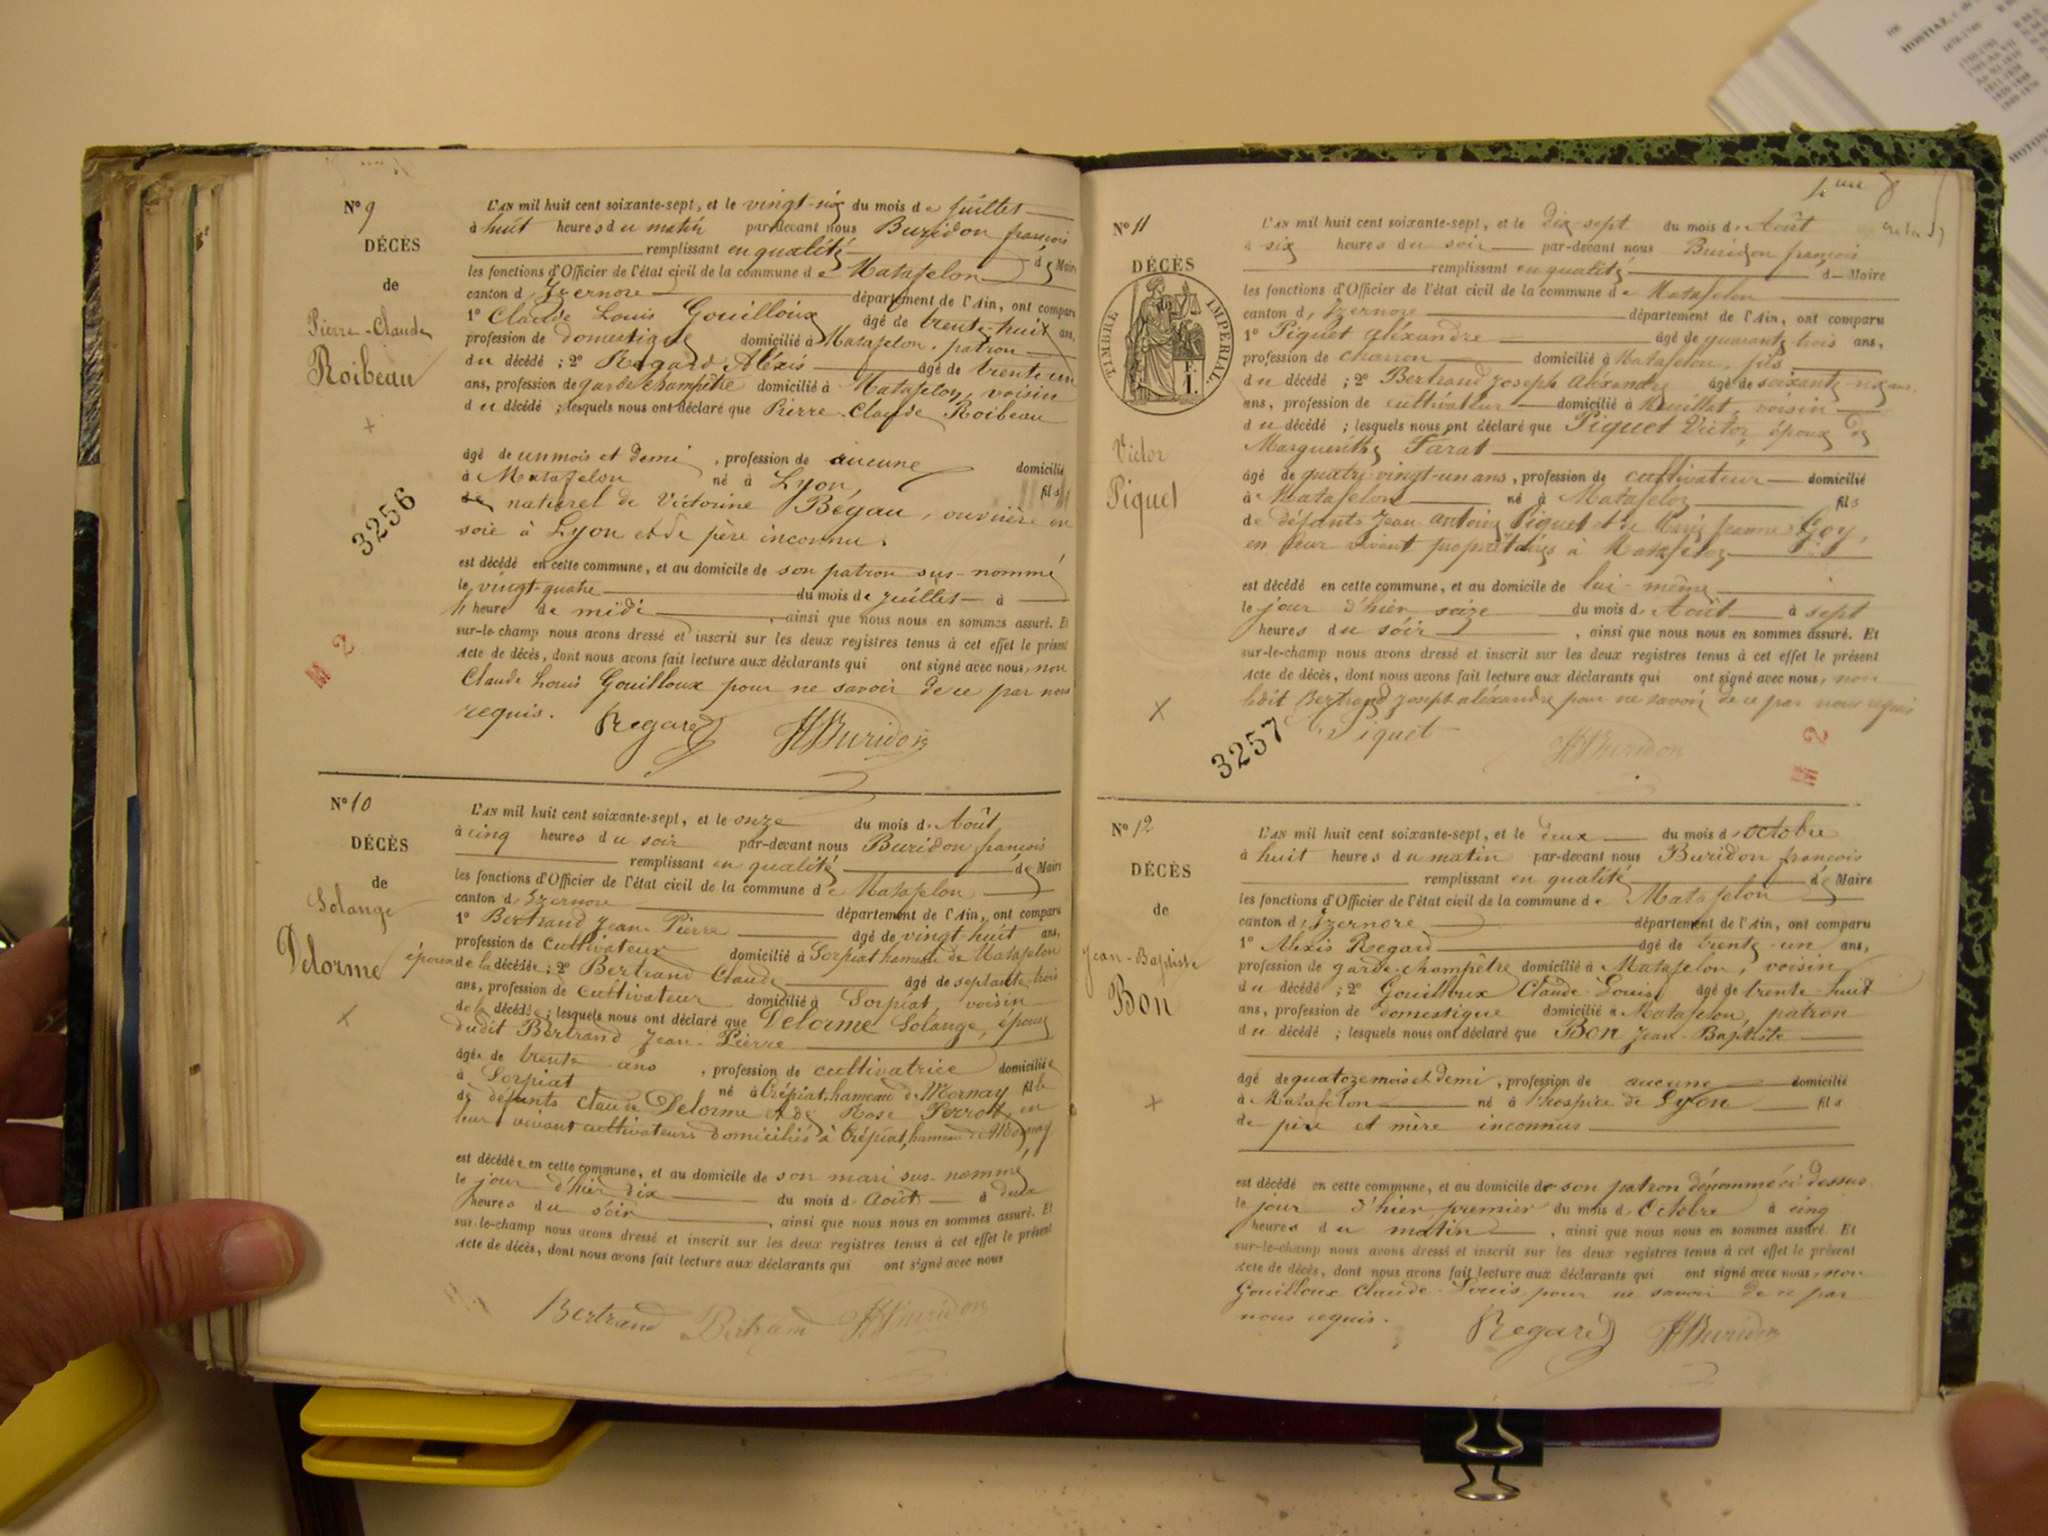 N° 9
DÉCÈS
de
Pierre-Claude
Roibeau
3256
M 2
L'AN mil huit cent soixante-sept, et le vingt-six du mois de juillet
à huit heures du matin par-devant nous Buridon françois
remplissant en qualité de Maire
les fonctions d'Officier de l'état civil de la commune de Matafelon
canton d'Izernore département de l'Ain, ont comparu
1° Claude Louis Gouilloux âgé de trente-huit ans,
profession de domestique domicilié à Matafelon, patron
du décédé ; 2° Regard Aléxis âgé de trente un
ans, profession de garde champêtre domicilié à Matafelon, voisin
du décédé ; lesquels nous ont déclaré que Pierre-Claude Roibeau
âgé de un mois et demi, profession de aucune domicilié
à Matafelon né à Lyon, fils
naturel de Victorine Bégau, ouvrière en
soie à Lyon et de père inconnu.
est décédé en cette commune, et au domicile de son patron sus-nommé
le vingt-quatre du mois de juillet à
heure de midi, ainsi que nous nous en sommes assuré. Et
sur-le-champ nous avons dressé et inscrit sur les deux registres tenus à cet effet le présent
Acte de décès, dont nous avons fait lecture aux déclarants qui ont signé avec nous, non
Claude Louis Gouilloux pour ne savoir de ce par nous
requis. Regard Buridon
N° 10
DÉCÈS
de
Solange
Delorme
L'AN mil huit cent soixante-sept, et le onze du mois d'Août
à cinq heures du soir par-devant nous Buridon françois
remplissant en qualité de Maire
les fonctions d'Officier de l'état civil de la commune de Matafelon
canton d'Izernore département de l'Ain, ont comparu
1° Bertrand Jean-Pierre âgé de vingt-huit ans,
profession de cultivateur domicilié à Sorpiat hameau de Matafelon
époux de la décédée ; 2° Bertrand Claude âgé de septante-trois
ans, profession de cultivateur domicilié à Sorpiat, voisin
de la décédée ; lesquels nous ont déclaré que Delorme Solange, épouse
dudit Bertrand Jean-Pierre
âgée de trente ans, profession de cultivatrice domiciliée
à Sorpiat né à Crépiat, hameau de Mornay fille
de défunts Claude Delorme et de Rose Perrot, en
leur vivant cultivateurs domiciliés à Crépiat, hameau de Mornay
est décédée en cette commune, et au domicile de son mari sus-nommé
le jour d'hier dix du mois d'Août à deux
heures du soir, ainsi que nous nous en sommes assuré. Et
sur-le-champ nous avons dressé et inscrit sur les deux registres tenus à cet effet le présent
Acte de décès, dont nous avons fait lecture aux déclarants qui ont signé avec nous
Bertrand Bertrand Buridon
N° 11
DÉCÈS
TIMBRE IMPÉRIAL
Victor
Piquet
3257
M 2
L'AN mil huit cent soixante-sept, et le dix-sept du mois d'Août
à six heures du soir par-devant nous Buridon françois
remplissant en qualité de Maire
les fonctions d'Officier de l'état civil de la commune de Matafelon
canton d'Izernore département de l'Ain, ont comparu
1° Piquet aléxandre âgé de quarante trois ans,
profession de charron domicilié à Matafelon, fils
du décédé ; 2° Bertrand Joseph aléxandre âgé de soixante-six ans.
ans, profession de cultivateur domicilié à voisin
du décédé ; lesquels nous ont déclaré que Piquet Victor, époux de
Marguerithe Farat
âgé de quatre-vingt-un ans, profession de cultivateur domicilié
à Matafelon né à Matafelon fils
de défunts Jean-antoine Piquet et de Marie jeanne Goy,
en leur vivant propriétaires à Matafelon
est décédé en cette commune, et au domicile de lui-même
le jour d'hier seize du mois d'Août à sept
heures du soir, ainsi que nous nous en sommes assuré. Et
sur-le-champ nous avons dressé et inscrit sur les deux registres tenus à cet effet le présent
Acte de décès, dont nous avons fait lecture aux déclarants qui ont signé avec nous, non
ledit Bertrand Joseph aléxandre pour ne savoir de ce par nous requis
Piquet Buridon
N° 12
DÉCÈS
de
Jean-Baptiste
Bon
L'AN mil huit cent soixante-sept, et le deux du mois d'octobre
à huit heures du matin par-devant nous Buridon françois
remplissant en qualité de Maire
les fonctions d'Officier de l'état civil de la commune de Matafelon
canton d'Izernore département de l'Ain, ont comparu
1° Aléxis Regard âgé de trente-un ans,
profession de garde-champêtre domicilié à Matafelon, voisin
du décédé ; 2° Gouilloux Claude-Louis âgé de trente-huit
ans, profession de domestique domicilié à Matafelon, patron
du décédé ; lesquels nous ont déclaré que Bon Jean-Baptiste
âgé de quatoze mois et demi, profession de aucune domicilié
à Matafelon né à l'hospice de Lyon fils
de père et mère inconnus
est décédé en cette commune, et au domicile de son patron dénommé ci-dessus
le jour d'hier premier du mois d'Octobre à cinq
heures du matin, ainsi que nous nous en sommes assuré. Et
sur-le-champ nous avons dressé et inscrit sur les deux registres tenus à cet effet le présent
Acte de décès, dont nous avons fait lecture aux déclarants qui ont signé avec nous, non
Gouilloux Claude-Louis pour ne savoir de ce par
nous requis. Regard Buridon